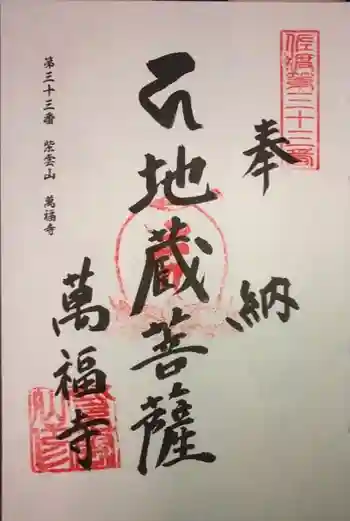 佐渡第三十三番
奉納
石地蔵菩薩
萬福寺
第三十三番 紫雲山 萬福寺